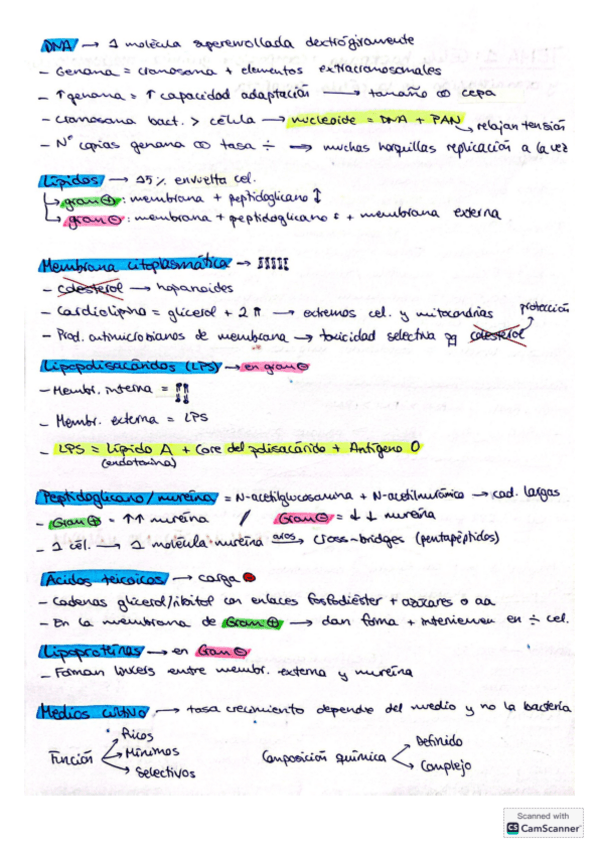 DNA → 1 molécula superenrollada dextrógiramente
- Genoma = cromosoma + elementos extracromosomales
- ↑genoma = ↑ capacidad adaptación → tamaño ∞ cepa
- Cromosoma bact. > célula → nucleoide = DNA + PAN
↳ relajan tensión
- Nº copias genoma ∞ tasa ÷ → muchas horquillas replicación a la vez
Lípidos → 25% envuelta cel.
↳ gram ⊕: membrana + peptidoglicano ↕
↳ gram ⊖: membrana + peptidoglicano + membrana externa
Membrana citoplasmática →
- Colesterol → hopanoides
- Cardiolipina = glicerol + 2 → extremos cel. y mitocondrias
protección
- Prod. antimicrobianos de membrana → toxicidad selectiva pq colesterol
Lipopolisacáridos (LPS) → en gram ⊖
- Membr. interna =
- Membr. externa = LPS
- LPS = Lípido A + Core del polisacárido + Antígeno O
(endotoxina)
Peptidoglicano/mureína = N-acetilglucosamina + N-acetilmurámico → cad. largas
- Gram ⊕ = ↑↑ mureína / Gram ⊖ = ↓↓ mureína
- 1 cél. → 1 molécula mureína → cross-bridges (pentapéptidos)
Ácidos teicoicos → carga
- Cadenas glicerol/ribitol con enlaces fosfodiéster + azúcares o aa
- En la membrana de Gram ⊕ → dan forma + intervienen en ÷ cel.
Lipoproteínas → en Gram ⊖
- Forman linkers entre membr. externa y mureína
Medios cultivo → tasa crecimiento depende del medio y no la bacteria
Función
Ricos
Mínimos
Selectivos
Composición química
Definido
Complejo
Scanned with
CS CamScanner